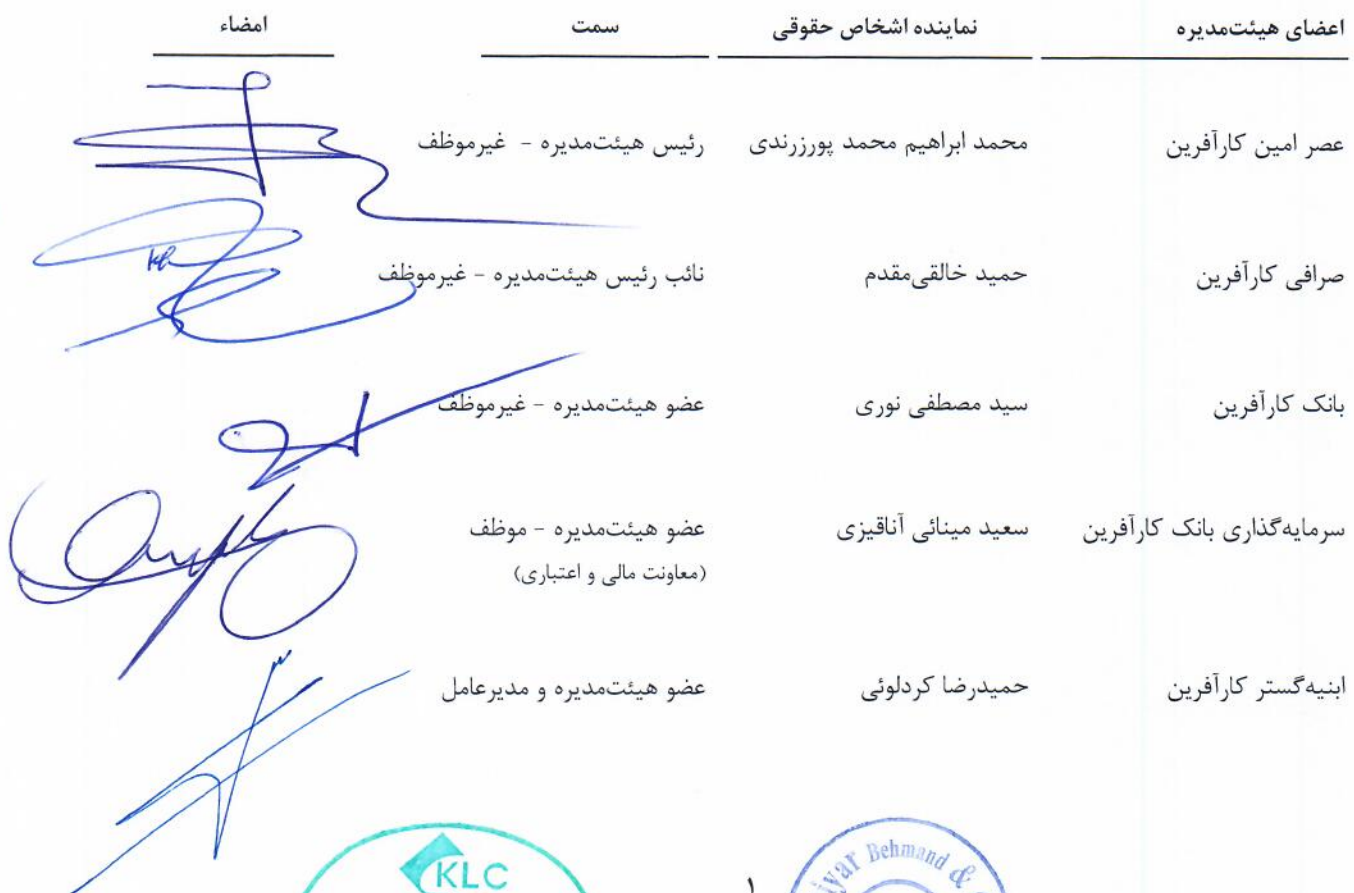 اعضای هیئت‌مدیره نماینده اشخاص حقوقی سمت امضاء
عصر امین کارآفرین محمد ابراهیم محمد پورزرندی رئیس هیئت‌مدیره - غیرموظف
صرافی کارآفرین حمید خالقی‌مقدم نائب رئیس هیئت‌مدیره - غیرموظف
بانک کارآفرین سید مصطفی نوری عضو هیئت‌مدیره - غیرموظف
سرمایه‌گذاری بانک کارآفرین سعید مینائی آناقیزی عضو هیئت‌مدیره - موظف
(معاونت مالی و اعتباری)
ابنیه‌گستر کارآفرین حمیدرضا کردلوئی عضو هیئت‌مدیره و مدیرعامل
Behmand &
۱
KLC